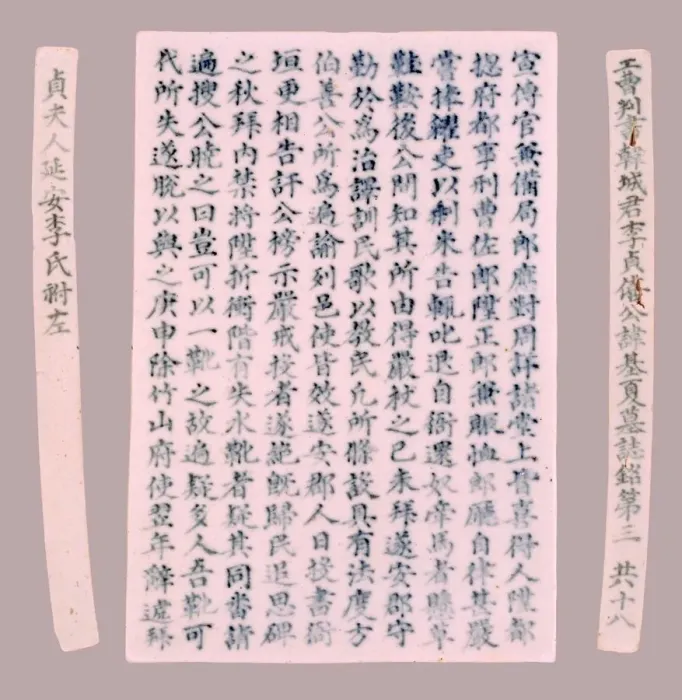 工曹判書韓城君李貞僖公諱基夏墓誌銘第三 共十八
宣傳官兼備局郎應對周詳諸堂上皆喜得人陞都
摠府都事刑曹佐郎陞正郎兼賑恤郎廳自律甚嚴
嘗捧糶吏以剩米告輒叱退自衙還奴牽馬者賺草
鞋鞍後公問知其所由得嚴杖之己未拜遂安郡守
勤於爲治譯訓民歌以教民凡所條設具有法度方
伯善公所爲遍諭列邑使皆效遂安郡人日投書衙
垣更相告訐公榜示嚴戒投者遂絶旣歸民追思碑
之秋拜內禁將陞折衝階有失水靴者疑其同番請
遍搜公曉之曰豈可以一靴之故遍疑多人吾靴可
代所失遂脫以與之庚申除竹山府使翌年辭遞拜
貞夫人延安李氏祔左